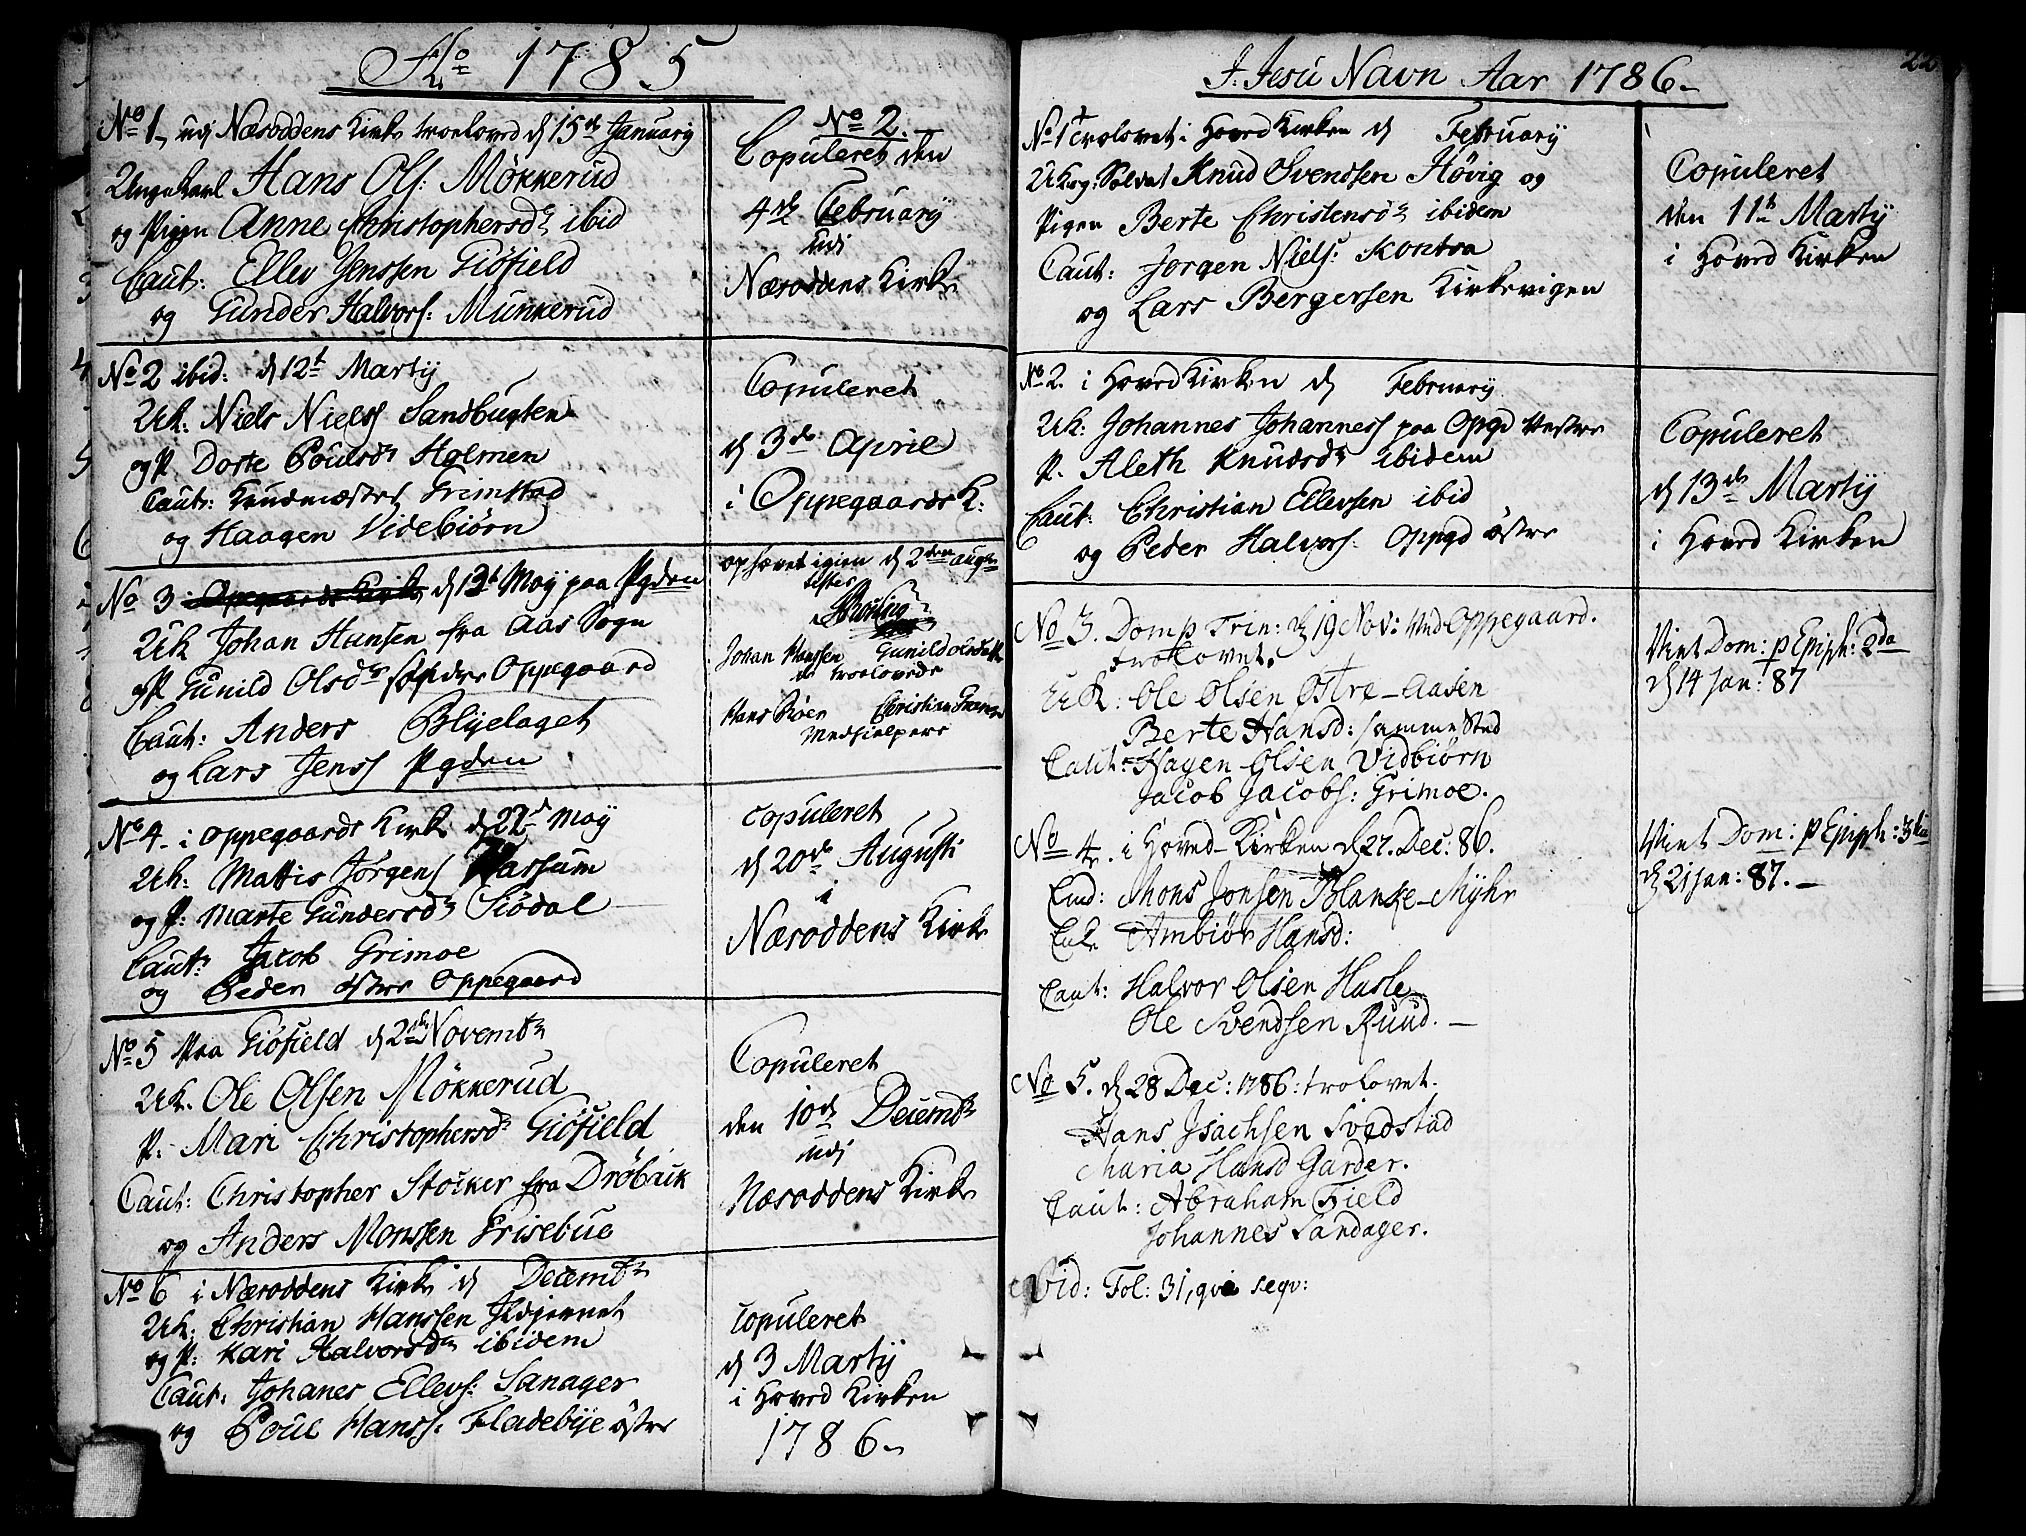 Ao 1785
No 1, udj Næsoddens Kirke troelovd d 15de January
Ungekarl Hans Ols: Mökkerud
og Pigen Anne Christophersdr ibid
Caut: Ellev Jenssen Giöfield
og Gunder Halvors: Munkerud
No 2.
Copuleret den
4de February
udj
Næsoddens Kirke
No 2 ibid: d 12t Martij
Uk: Niels Niels Sandbugten
og P. Dorte Poulsdr Holmen
Caut: Grimstad
og Haagen Videbiörn
Copuleret
d 3de Aprile
i Oppegaards K:
No 3 i Opegaards Kirke d 13t Maÿ paa Pgden
Uk Johan Hansen fra Aas Sogn
og P Gunild Olsdr Oppegaard
Caut: Anders Blylaget
og Lars Jenss Pgden
ophævet igien d 2den
testes
Johan Hanssen Gunild
de troelovede
Hans Christian
Medhielpere
No 4 i Oppegaards Kirke d 22d Maÿ
Uk: Mattis Jörgens Wassum
og P: Marte Gundersdr Siödal
Caut: Jacob Grimoe
og Peder östre Oppegaard
copuleret
d 20de Augusti
i
Næsoddens Kirke
No 5 paa Giöfield d 2de Novembr
Uk. Ole Olsen Mökkerud
P. Mari Christophersdr Giöfield
Caut: Christopher Stocker fra Dröback
og Anders Monssen Grisebue
Copuleret
den 10de Decembr
udj
Næsoddens Kirke
No 6 i Næsoddens Kirke d Decembr
Uk: Christian Hanssen
og P: Kari Halvorsdr ibidem
Caut: Johanes Ellevs: Sanager
og Poul Hanss: Fladebÿe östre
copuleret
d 3 Martij
i Hoved Kirken
1786
22
J. Jesu Navn Aar 1786
No 1 Trolovet i Hoved Kirken d February
Uk og Soldat Knud Svendsen Hövig og
Pigen Berte Christensdr ibidem
Caut: Jorgen Niels: Kontra
og Lars Bergersen Kirkevigen
Copuleret
den 11te Martij
i Hoved Kirken
No 2. i Hoved Kirken d February
Uk: Johannes Johanness paa Opgd Vestre
P. Aleth Knudsdr ibidem
Caut: Christian Ellevsen ibid
og Peder Halvors: Oppgd östre
Copuleret
d 13de Martij
i Hoved Kirken
No 3. Dom p Trin: d 19 Nov: ved Oppegaard.
trolovet.
Uk: Ole Olsen Östre-Aasen
Berte Hansd: samme Sted
Caut: Hagen Olsen Vidbiörn
Jacob Jacobs: Grimoe.
Viet Dom: p Epiph: 2da
d 14 Jan: 87
No 4. i Hoved-Kirken d 27. Dec: 86.
Emd: Mons Jonsen Blanke-Mÿhr
Enke Ambiör Hansd:
Caut: Halvor Olsen Hasle
Ole Svendsen Ruud.
Viet Dom: p Epiph: 3tia
d 21 Jan: 87.
No 5. d 28 Dec: 1786: trolovet.
Hans Isachsen Svedstad
Maria Hansd Garder.
Caut: Abraham Field
Johannes Sandager.
Vid: Fol: 31, qvæ seqv: